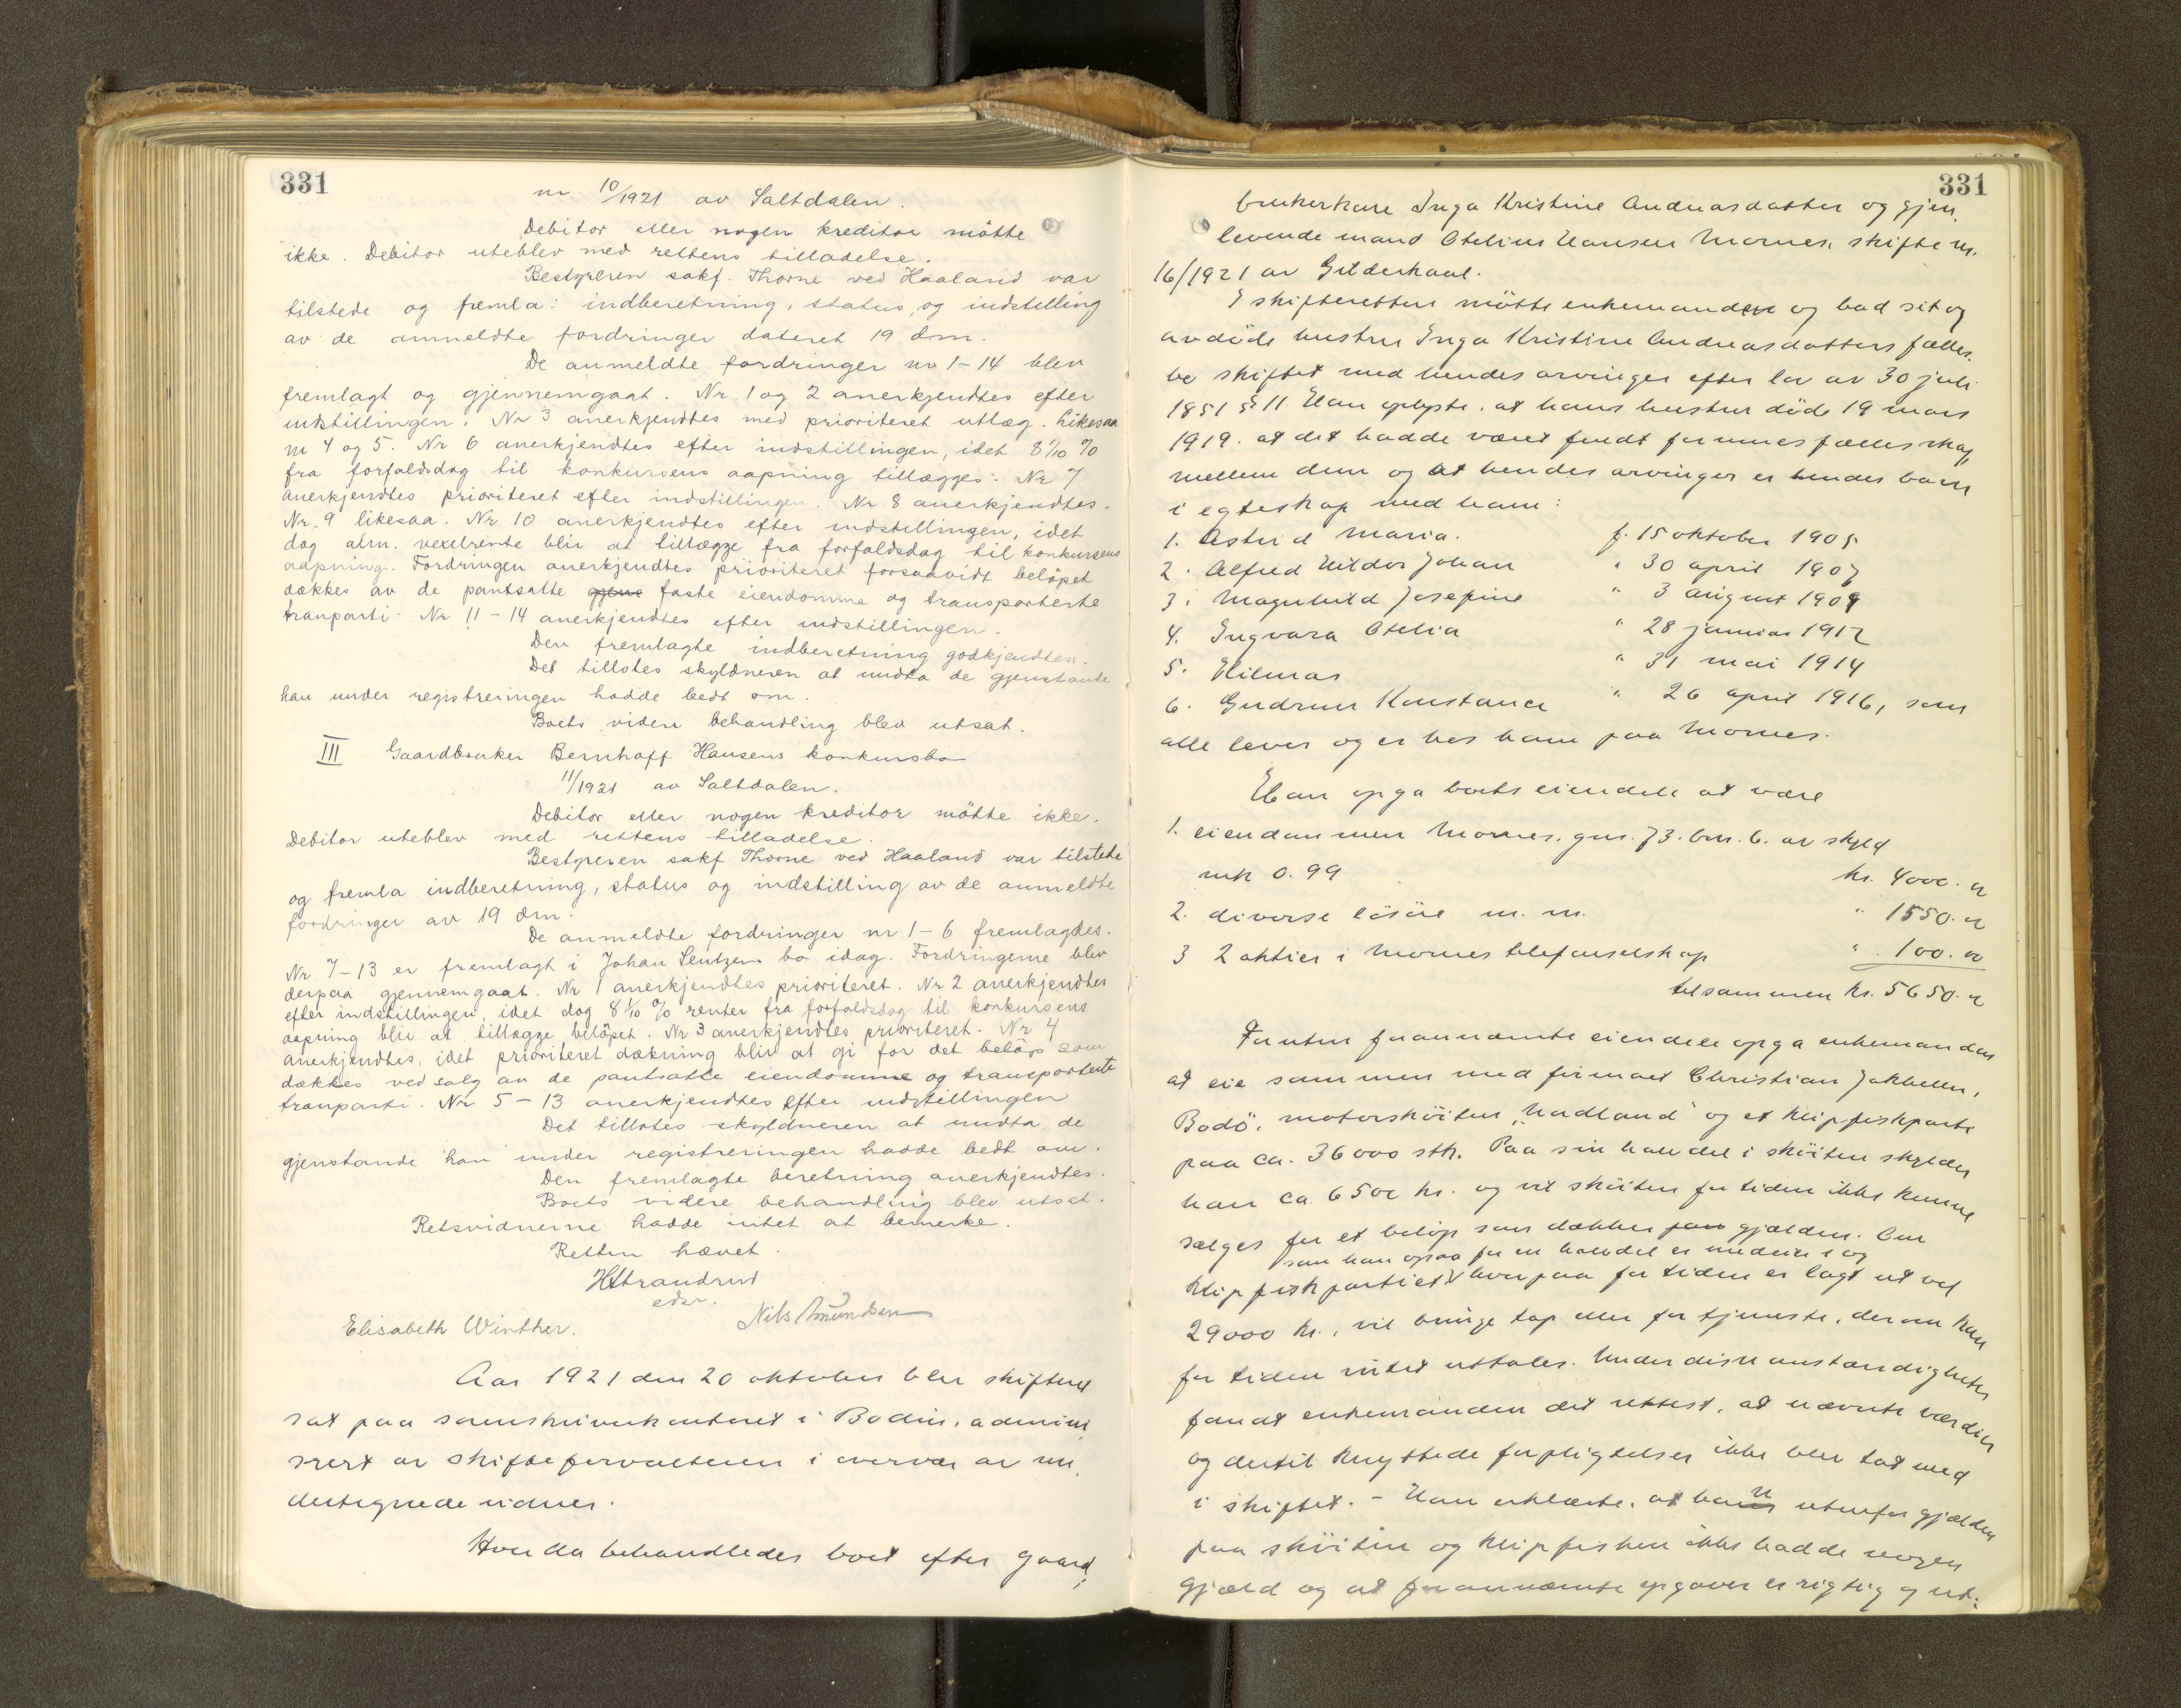 331
nr 10/1921 av Saltdalen.
Debitor eller nogen kreditor mötte
ikke. Debitor uteblev med rettens tilladelse.
Bestyreren sakf. Thorne ved Haaland var
tilstede og fremla: indberetning, status, og indstilling
av de anmeldte fordringer dateret 19 dm.
De anmeldte fordringer nr 1-14 blev
fremlagt og gjennemgaat. Nr. 1 og 2 anerkjendtes efter
indstillingen. Nr 3 anerkjendtes med prioriteret utlæg. Likesaa
nr 4 og 5. Nr 6 anerkjendtes efter indstillingen, idet 8 1/10 %
fra forfaldsdag til konkursens aapning tillægges. Nr 7
anerkjendtes prioriteret efter indstillingen. Nr 8 anerkjendtes.
Nr. 9 likesaa. Nr 10 anerkjendtes efter indstillingen, idet
dog alm. vexelrente blir at tillægge fra forfaldsdag til konkursens
aapning. Fordringen anerkjendtes prioriteret forsaavidt belöpet
dækkes av de pantsatte gjens faste eiendomme og transporterte
tranparti. Nr 11-14 anerkjendtes efter indstillingen.
Den fremlagte indberetning godkjendtes.
Det tillotes skyldneren at undta de gjenstande
han under registreringen hadde bedt om.
Boets videre behandling blev utsat.
III Gaardbruker Bernhoff Hansens konkursbo
11/1921 av Saltdalen.
Debitor eller nogen kreditor mötte ikke.
Debitor uteblev med rettens tilladelse.
Bestyreren sakf Thorne ved Haaland var tilstede
og fremla indberetning, status og indstilling av de anmeldte
fordringer av 19 dm.
De anmeldte fordringer nr 1-6 fremlagdes.
Nr 7-13 er fremlagt i Johan Lentzens bo idag. Fordringerne blev
derpaa gjennemgaat. Nr 1 anerkjendtes prioriteret. Nr 2 anerkjendtes
efter indstillingen, idet dog 8 1/10 % renter fra forfaldsdag til konkursens
aapning blir at tillægge belöpet. Nr 3 anerkjendtes prioriteret. Nr 4
anerkjendtes, idet prioriteret dækning blir at gi for det belöp som
dækkes ved salg av de pantsatte eiendomme og transporterte
tranparti. Nr 5-13 anerkjendtes efter indstillingen
Det tillotes skyldneren at undta de
gjenstande han under registreringen hadde bedt om.
Den fremlagte beretning anerkjendtes.
Boets videre behandling blev utsat.
Retsvidnerne hadde intet at bemerke.
Retten hævet.
HStrandrud
edsv.
Elisabeth Winther. Nils Amundsen
Aar 1921 den 20 oktober blev skifteret
sat paa sorenskriverkontoret i Bodin, admini
srert av skifteforvalteren i overvær av un,
dertegnede vidner.
Hvor da behandledes boet efter gaard,
331
brukerkone Inga Kristine Andreasdatter og gjen,
levende mand Otelius Hansen Mornes, skifte nr.
16/1921 av Gildeskaal.
I skifteretten mötte enkemanden og bad sit og
avdöde hustru Inga Kristine Andreasdatters fælles,
bo skiftet med hendes arvinger efter lov av 30 juli
1851 § 11 Han oplyste, at hans hustru döde 19 mars
1919. at det hadde været fuldt formuesfælleskap
mellem dem og at hendes arvinger er hendes barn
i egteskap med ham:
1. Astrid Maria. f. 15 oktober 1905
2. Alfred Hildor Johan " 30 april 1907
3. Magnhild Josefine " 3 august 1909
4. Ingvara Otelia " 28 januar 1912
5. Hilmar " 31 mai 1914
6. Gudrun Konstance " 26 april 1916, som
alle lever og er hos ham paa Mornes.
Han opga boets eiendele at være
1. eiendommen Mornes, gnr. 73. bnr. 6. av skyld
mk 0.99 kr. 4000.00
2. diverse lösöre m. m. " 1550.00
3 2 aktier i Mornes telefonselskap " 100.00
tilsammen kr. 5650.00
Foruten forannævnte eiendele opga enkemanden
at eie sammen med firmaet Christian Jakhelln,
Bodö, motorsköiten "Nordland" og et klipfiskparti
paa ca. 36000 stk. Paa sin halvdel i sköiten skylder
han ca. 6500 kr. og vil sköiten for tiden ikke kunne
sælges for et belöp som dækker gjælden. Om
som han ogsaa for en halvdel er medeier i og
klipfiskpartiet hvorpaa for tiden er lagt ut vel
29000 kr., vil bringe tap eller fortjeneste, derom kan
for tiden intet uttales. Under disse omstændigheter
fandt enkemanden det rettest, at nævnte værdier
og dertil knyttede forpligtelser ikke blev tat med
i skiftet. - Han erklærte, at han utenfor gjælden
paa sköiten og klipfisken ikke hadde nogen
gjæld og at forannævnte opgaver er rigtig og ut,